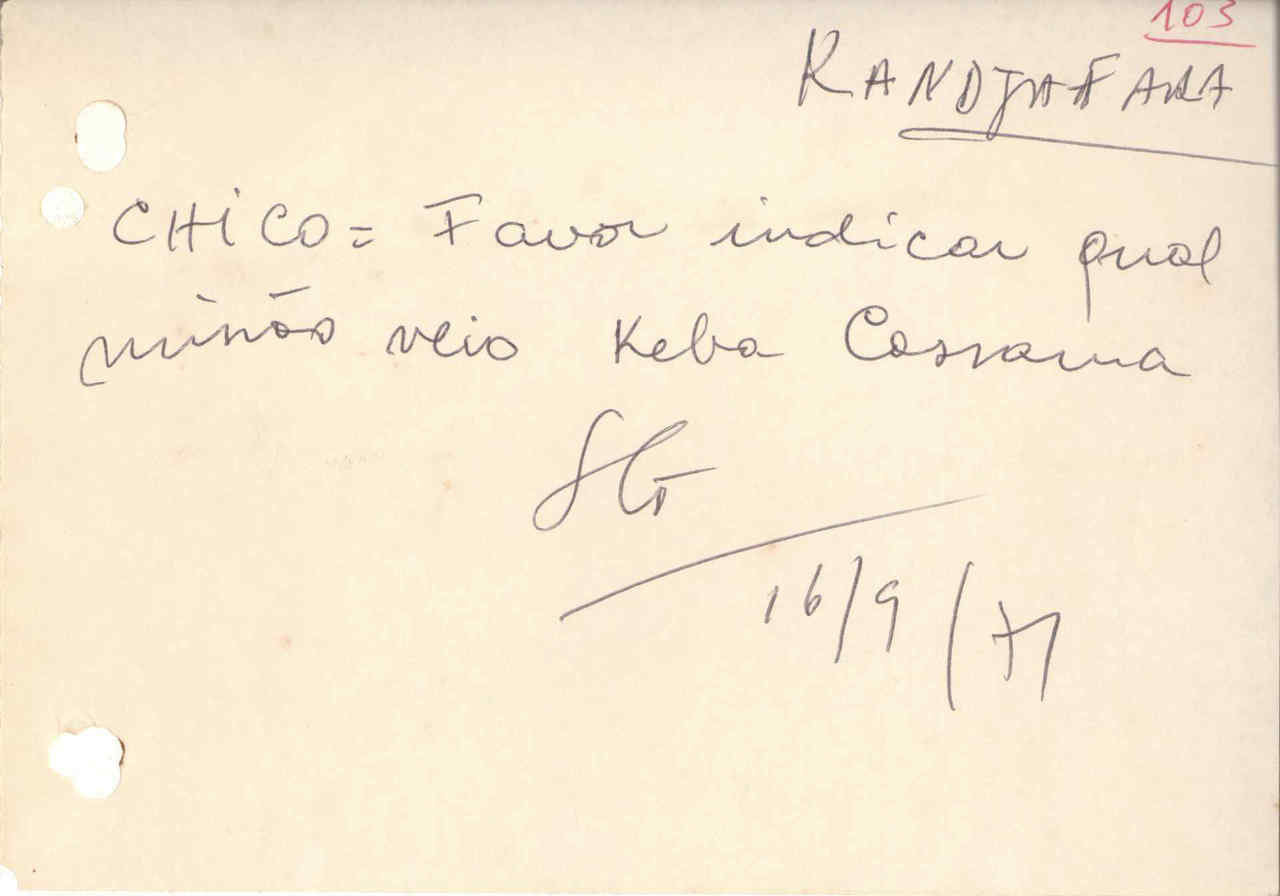 103
KANDJAFARA
CHICO = Favor indicar qual
missão veio Keba Cassama
16/9/71